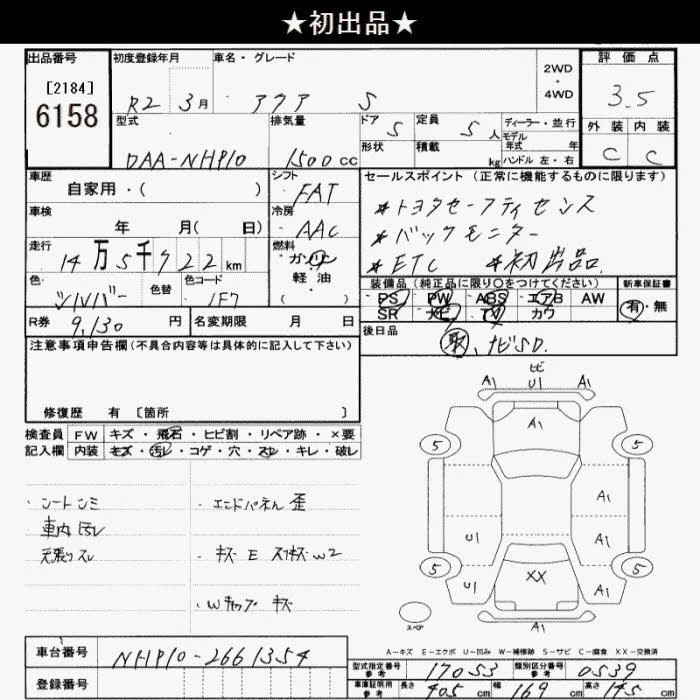 ★初出品★
出品番号 初度登録年月 車名・グレード 2WD・4WD 評価点
[2184]
6158
R2 3月 アクア S 3.5
型式 排気量 ドア 5 定員 5人 ディーラー・並行 外装 内装
DAA-NHP10 1500cc 形状 積載 kg モデル年式 年 ハンドル 左・右 C C
車歴 シフト セールスポイント (正常に機能するものに限ります)
自家用・( ) FAT
＊トヨタセーフティセンス
車検 年 月( 日) 冷房 AAC
＊バックモニター
走行 14万5千722km 燃料 ガソリン・軽油・( )
＊ETC ＊初出品.
色 シルバー 色替 色コード 1F7
装備品 (純正品に限り○をつけてください) 新車保証書
PS PW ABS エアB AW 有・無
SR ナビ TV カワ
R券 9,130円 名変期限 月 日
後日品 取、ナビSD.
注意事項申告欄(不具合内容等は具体的に記入して下さい)
修復歴 有 [箇所 ]
検査員 FW キズ・飛石・ヒビ割・リペア跡・×要
記入欄 内装 キズ・汚レ・コゲ・穴・スレ・キレ・破レ
・シートシミ ・エンドパネル歪
・車内汚レ
・天張りスレ ・キズ E スリキズ W2
・Wキャップ キズ
ヒビ
A1 U1 A1
A1
5 5
A1
U1 A1
5 5
U1 XX A1
A1
スペア
A－キズ E－エクボ U－凹み W－補修跡 S－サビ C－腐食 XX－交換済
車台番号 NHP10-2661354
型式指定番号 参考 17053 類別区分番号 参考 0539
登録番号
車庫証明用 参考 長さ 405cm 幅 169cm 高さ 145cm